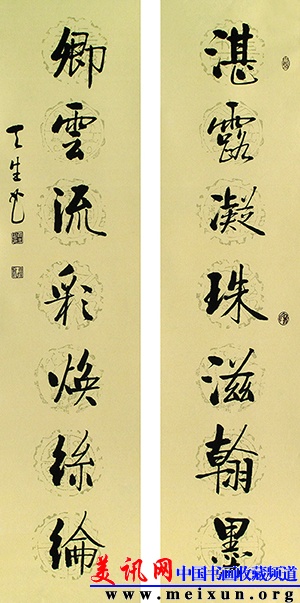 湛露凝珠滋翰墨
卿雲流彩焕絲綸
天生
美讯网 中国书画收藏频道
www.meixun.org